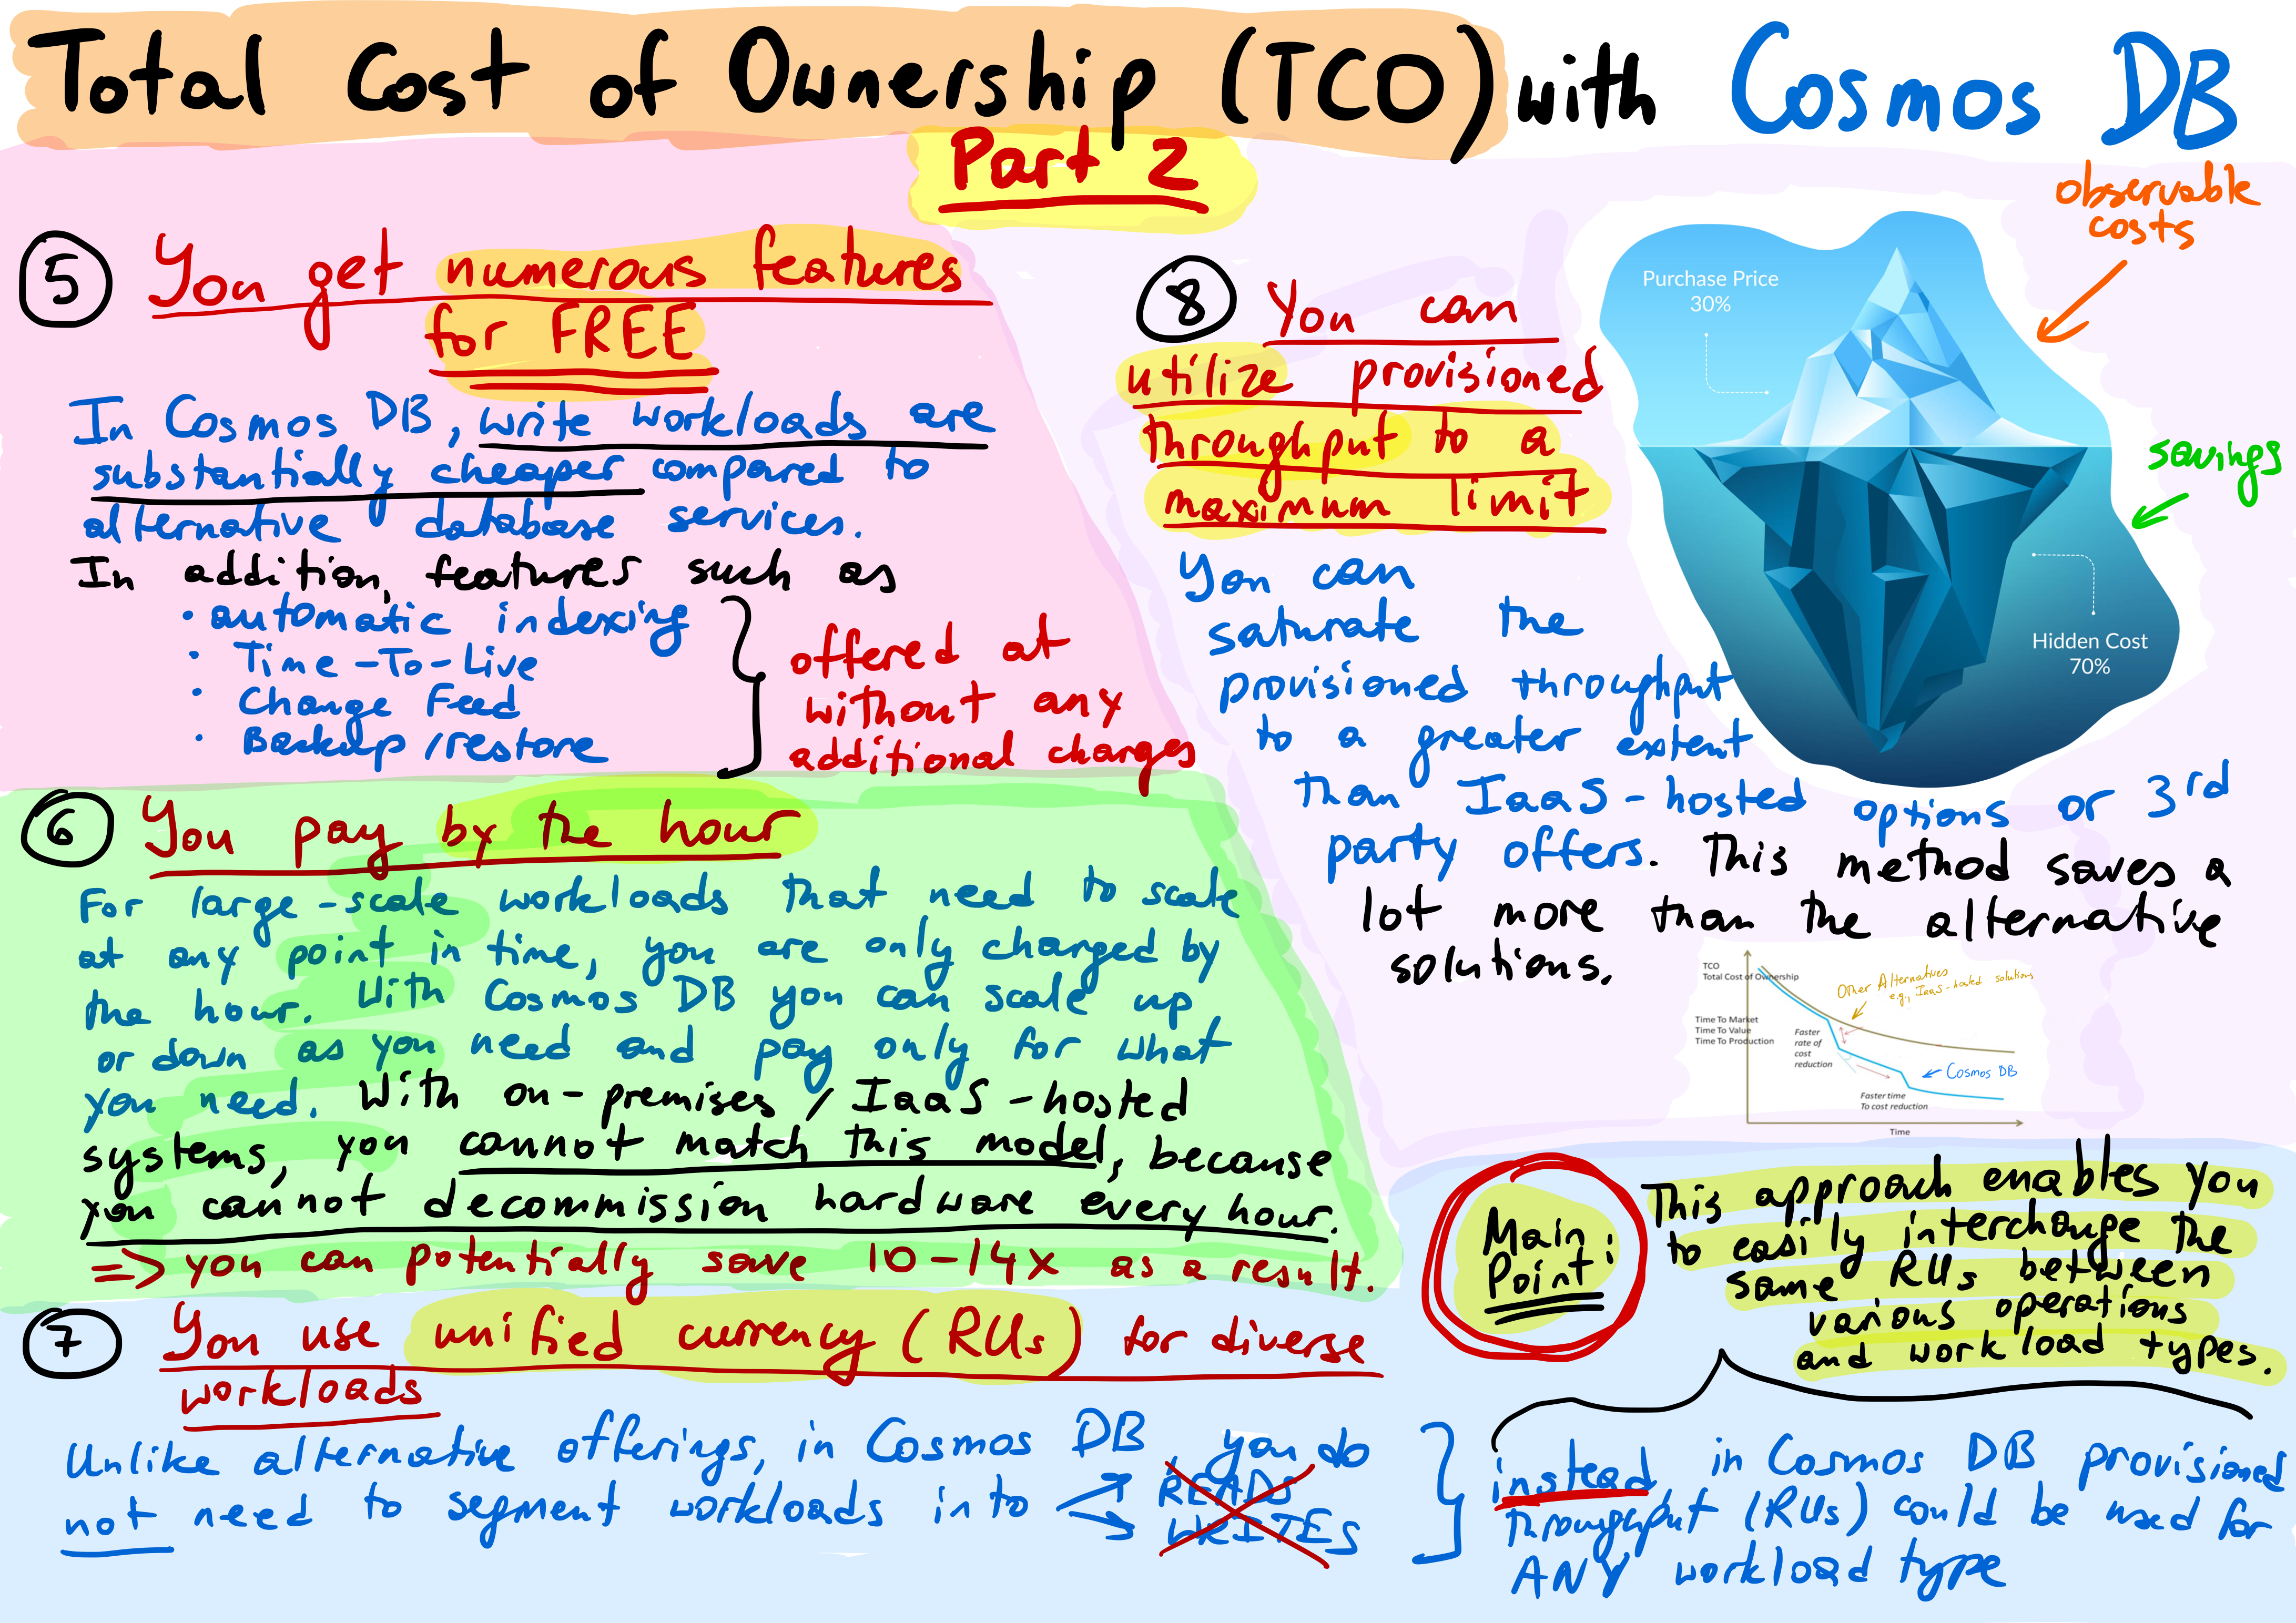 Total Cost of Ownership (TCO) with Cosmos DB
Part 2
5 You get numerous features
for FREE
In Cosmos DB, write workloads are
substantially cheaper compared to
alternative database services.
In addition, features such as
• automatic indexing
• Time-To-Live
• Change Feed
• Backup/restore
offered at
without any
additional charges
6 You pay by the hour
For large-scale workloads that need to scale
at any point in time, you are only charged by
the hour. With Cosmos DB you can scale up
or down as you need and pay only for what
you need. With on-premises / IaaS-hosted
systems, you cannot match this model, because
you cannot decommission hardware every hour.
=> you can potentially save 10-14x as a result.
7 You use unified currency (RUs) for diverse
workloads
Unlike alternative offerings, in Cosmos DB, you do
not need to segment workloads into
READS
WRITES
instead in Cosmos DB provisioned
throughput (RUs) could be used for
ANY workload type
Main
Point:
This approach enables you
to easily interchange the
same RUs between
various operations
and workload types.
8 You can
utilize provisioned
throughput to a
maximum limit
You can
saturate the
provisioned throughput
to a greater extent
than IaaS-hosted options or 3rd
party offers. This method saves a
lot more than the alternative
solutions.
observable
costs
Purchase Price
30%
savings
Hidden Cost
70%
TCO
Total Cost of Ownership
Other Alternatives
e.g., IaaS-hosted solutions
Time To Market
Time To Value
Time To Production
Faster
rate of
cost
reduction
Cosmos DB
Faster time
To cost reduction
Time